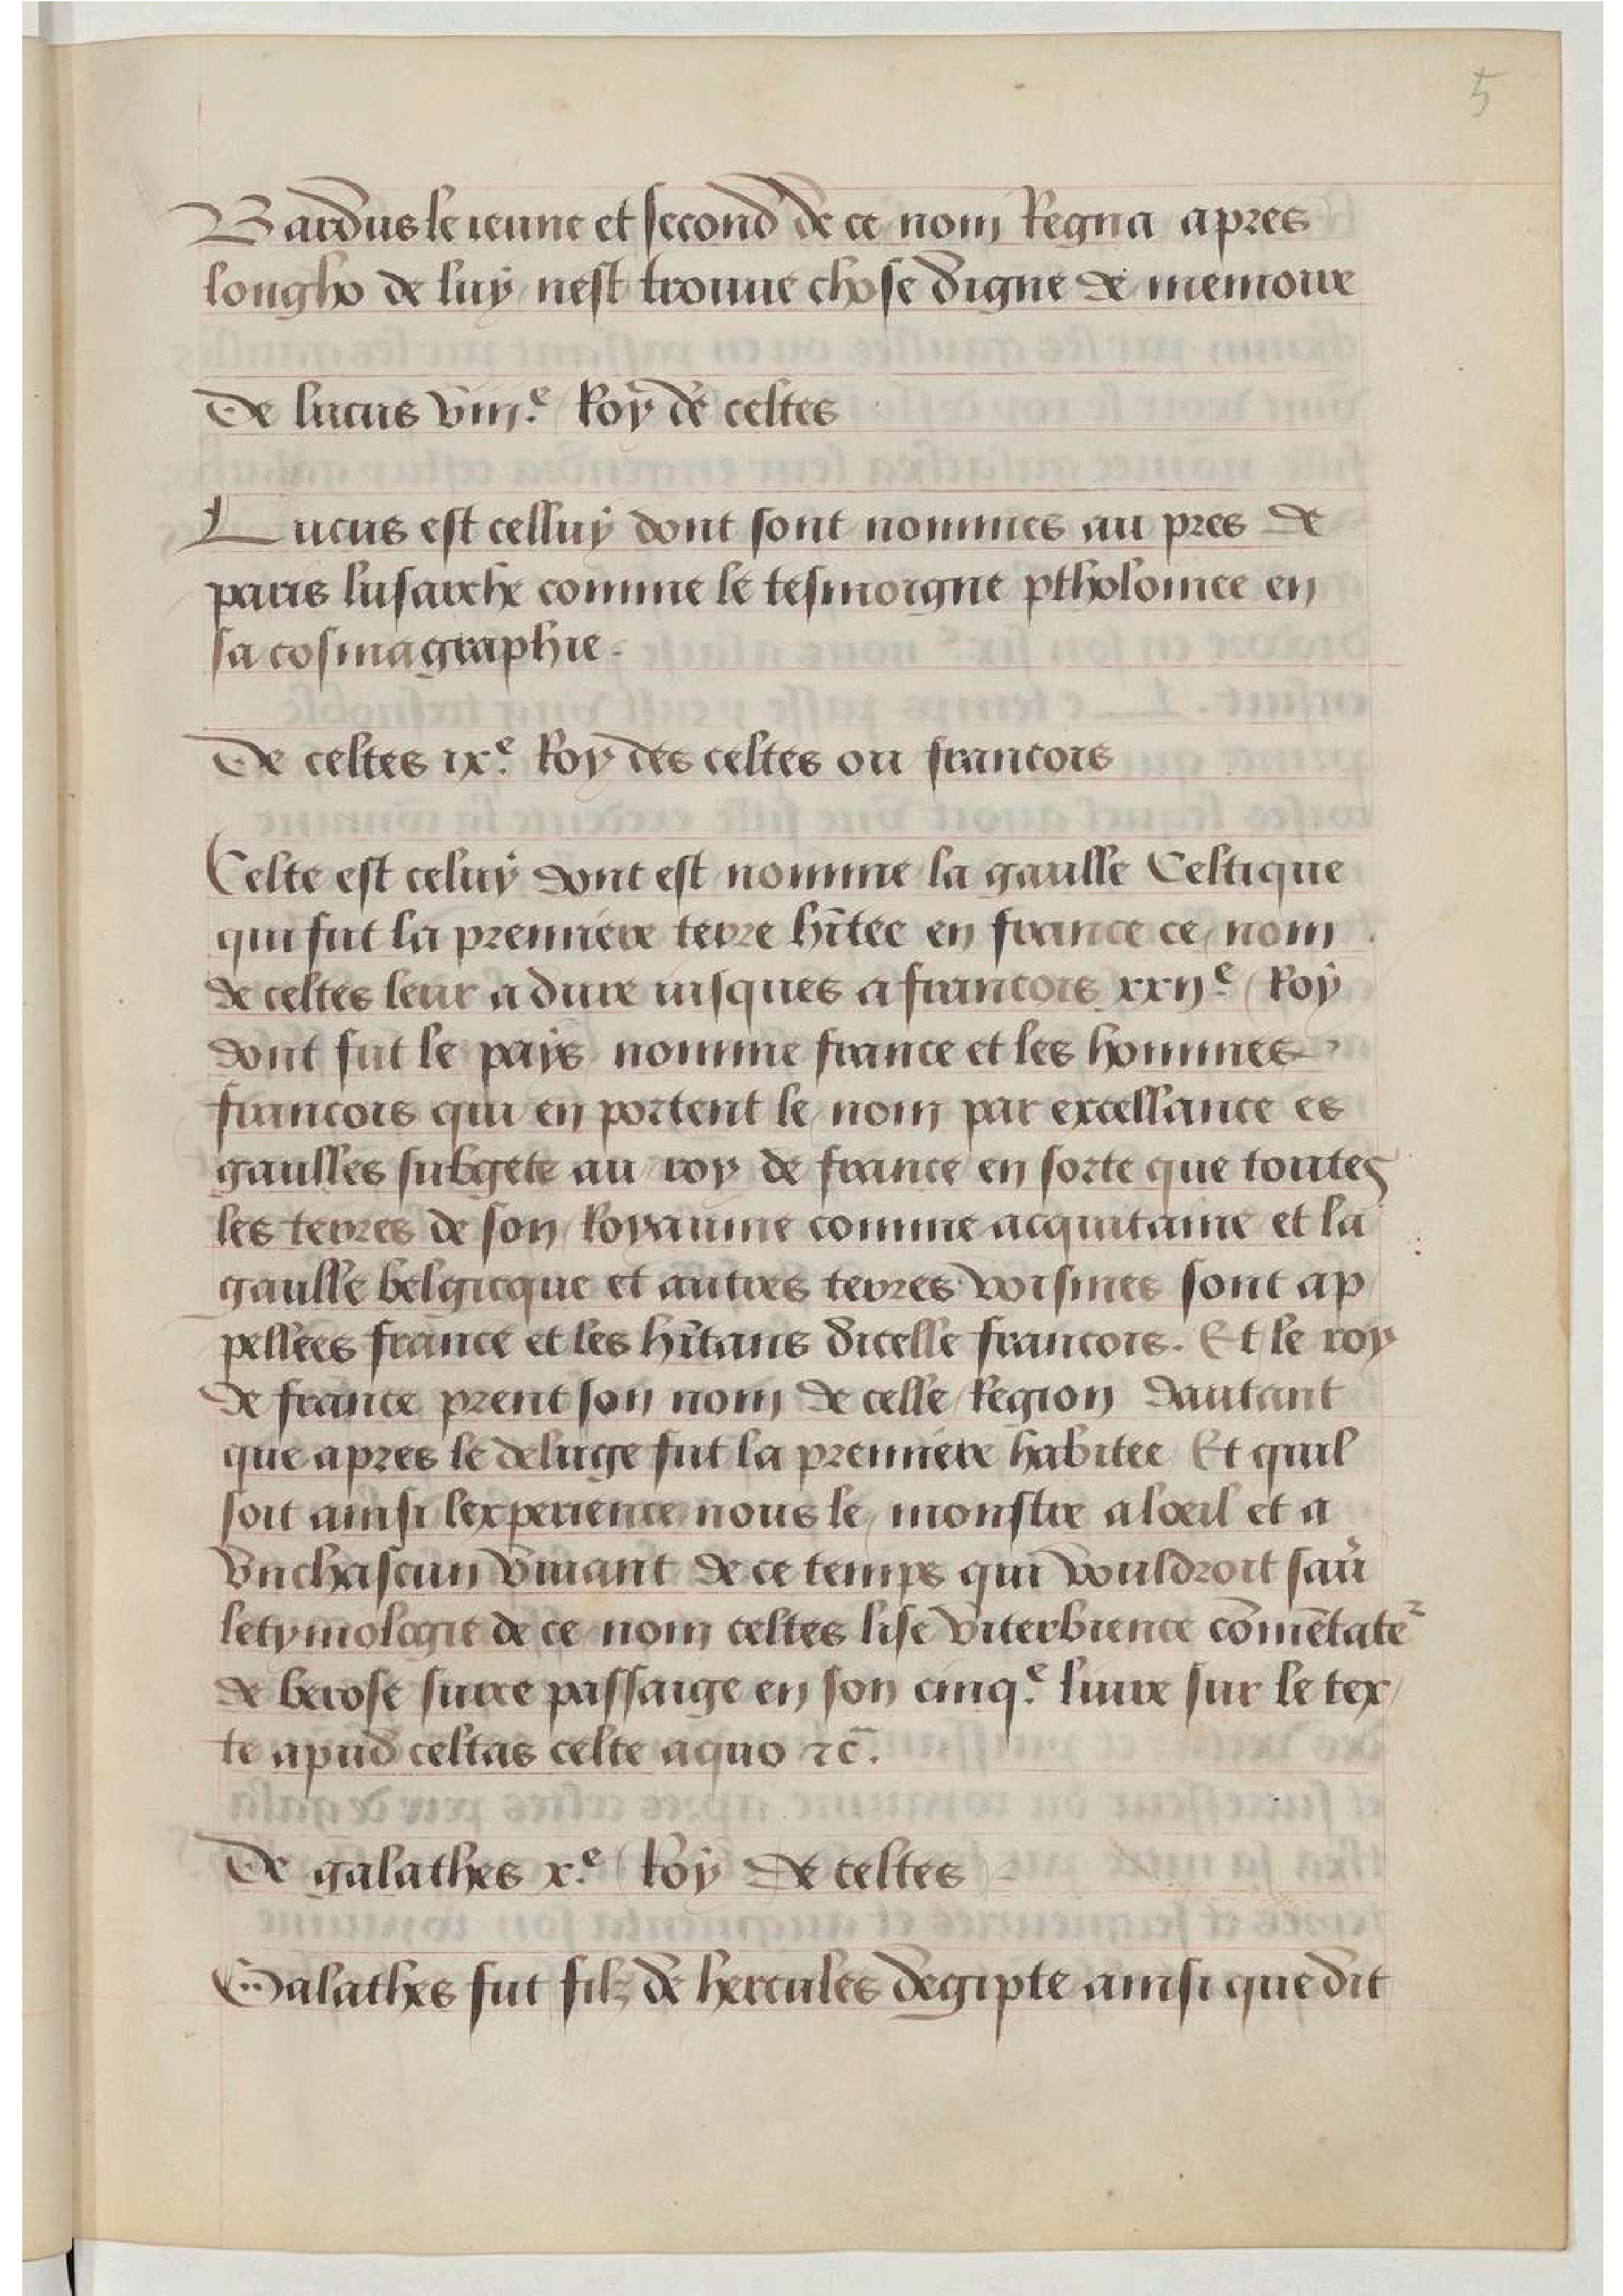 5
Bardus le ieune et second de ce nom Regna apres
longho de luy nest trouue chose digne de memoire
De lucus viij.e Roy de celtes
Lucus est celluy dont sont nommes au pres de
paris lusarche comme le tesmoigne ptholomee en
sa cosmagraphie.
De celtes ix.e Roy des celtes ou francois
Celte est celuy dont est nomme la gaulle Celtique
qui fut la premiere terre hĩtee en france ce nom
de celtes leur a dure iusques a francois xxij.e Roy
dont fut le pays nomme france et les hommes
francois qui en portent le nom par excellance es
gaulles subgete au roy de france en sorte que toutes
les terres de son Royaume comme acquitaine et la
gaulle belgicque et autres terres voisines sont ap
pellees france et les hĩtans dicelle francois. Et le roy
de france prent son nom de celle Region dautant
que apres le deluge fut la premiere habitee Et quil
soit ainsi lexperience nous le monstre a loeil et a
vnchascun viuant de ce temps qui vouldroit sau̾
letymologie de ce nom celtes lise viterbience cõmẽtate᷑
de berose sur ce passaige en son cinq.e liure sur le tex/
te apud celtas celte aquo ⁊c̄.
De galathes x.e Roy de celtes
Galathes fut filz de hercules degipte ainsi que dit